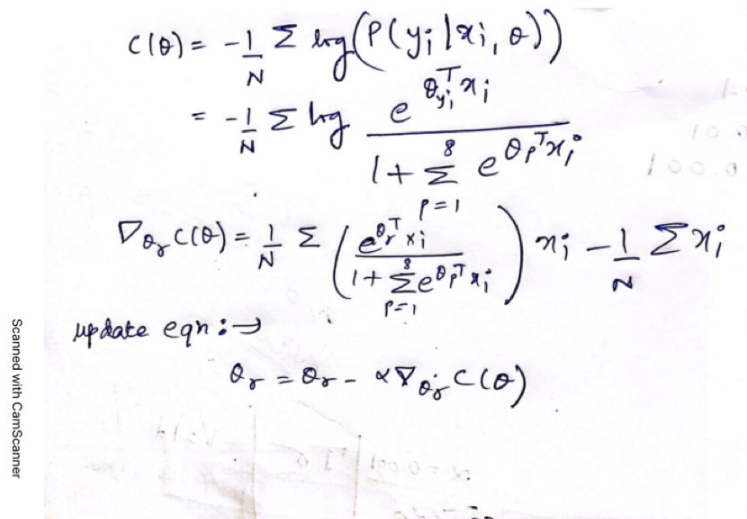 C(θ) = -1/N Σ log(P(y_i | x_i, θ))
= -1/N Σ log e^{θ_{y_i}^T x_i} / (1 + Σ_{p=1}^{8} e^{θ_p^T x_i})
∇_{θ_r} C(θ) = 1/N Σ (e^{θ_r^T x_i} / (1 + Σ_{p=1}^{8} e^{θ_p^T x_i})) x_i - 1/N Σ x_i
update eqn :→
θ_r = θ_r - α ∇_{θ_r} C(θ)
Scanned with CamScanner